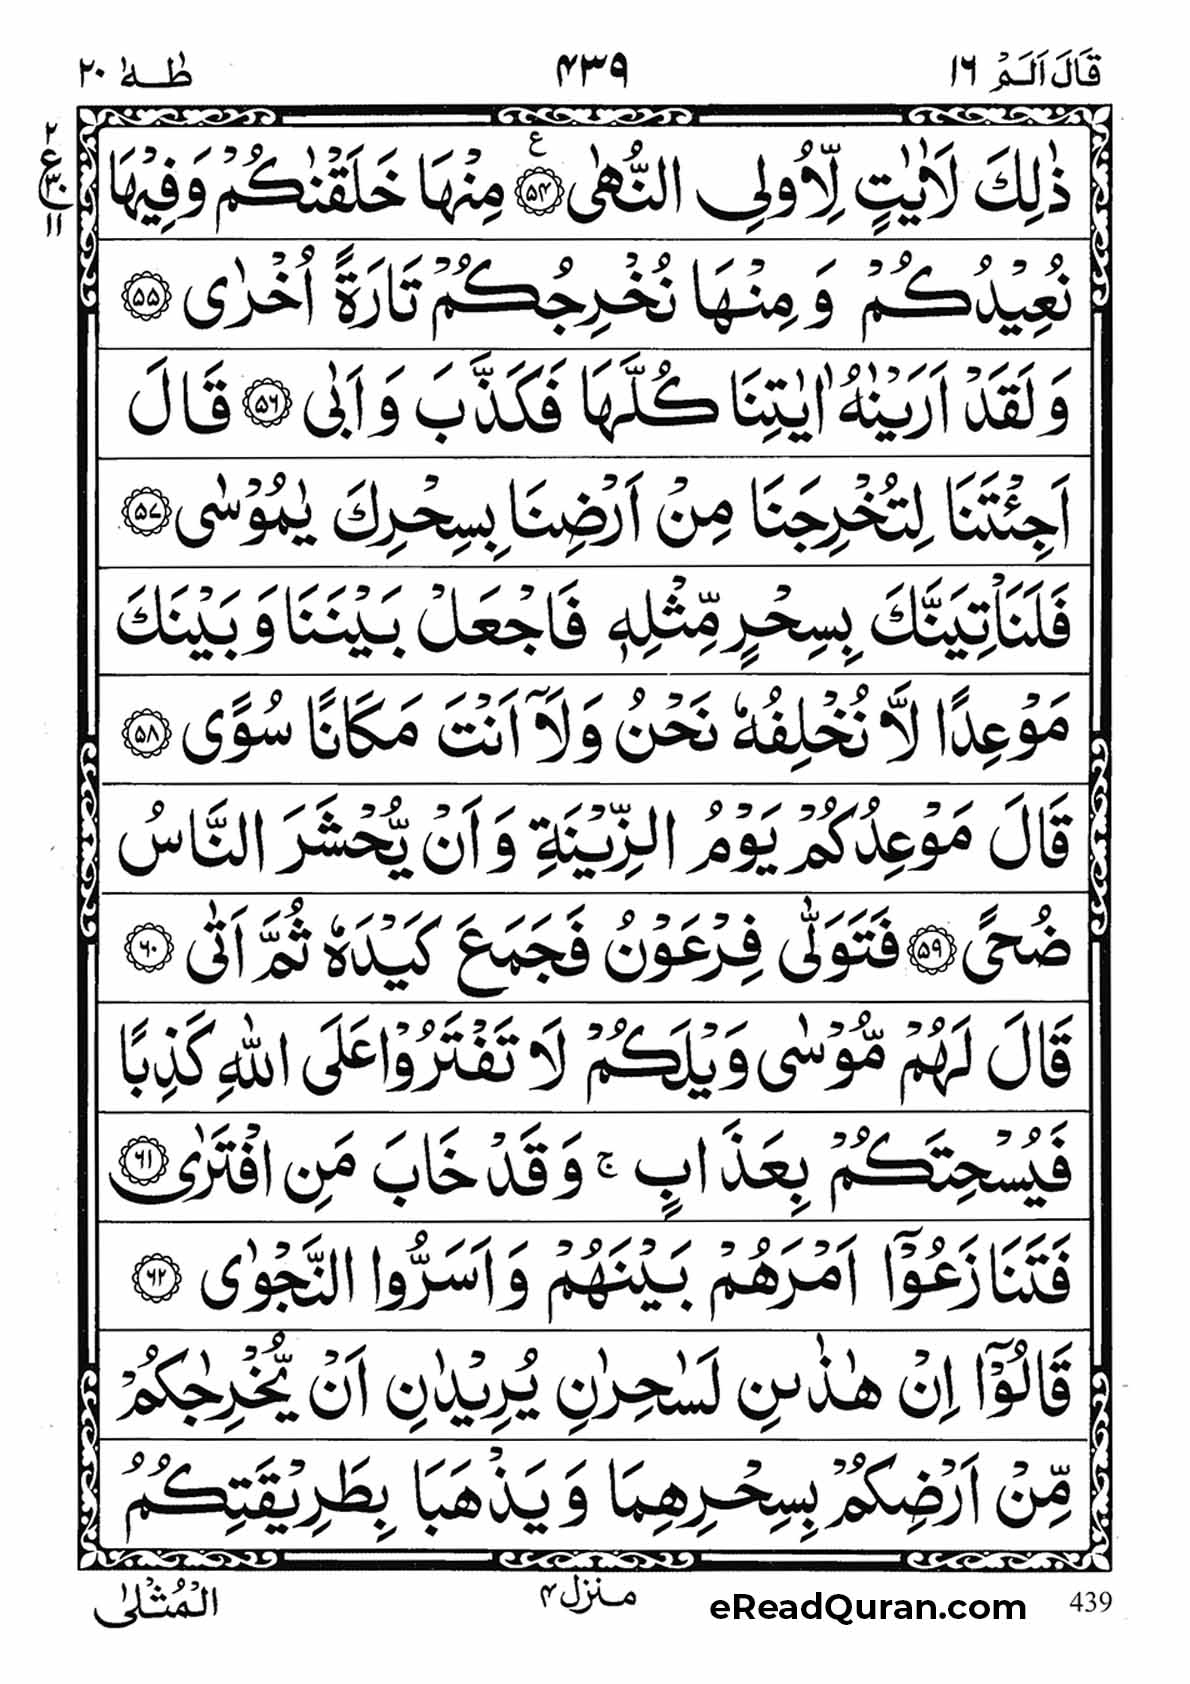 قَالَ اَلَمْ ١٦ ٤٣٩ طٰهٰ ٢٠
٢
ع
٣٠
١١
ذٰلِكَ لَاٰيٰتٍ لِّاُولِى النُّهٰى ۝٥٤ ع مِنْهَا خَلَقْنٰكُمْ وَفِيْهَا
نُعِيْدُكُمْ وَمِنْهَا نُخْرِجُكُمْ تَارَةً اُخْرٰى ۝٥٥
وَلَقَدْ اَرَيْنٰهُ اٰيٰتِنَا كُلَّهَا فَكَذَّبَ وَاَبٰى ۝٥٦ قَالَ
اَجِئْتَنَا لِتُخْرِجَنَا مِنْ اَرْضِنَا بِسِحْرِكَ يٰمُوْسٰى ۝٥٧
فَلَنَاْتِيَنَّكَ بِسِحْرٍ مِّثْلِهٖ فَاجْعَلْ بَيْنَنَا وَبَيْنَكَ
مَوْعِدًا لَّا نُخْلِفُهٗ نَحْنُ وَلَآ اَنْتَ مَكَانًا سُوًى ۝٥٨
قَالَ مَوْعِدُكُمْ يَوْمُ الزِّيْنَةِ وَاَنْ يُّحْشَرَ النَّاسُ
ضُحًى ۝٥٩ فَتَوَلّٰى فِرْعَوْنُ فَجَمَعَ كَيْدَهٗ ثُمَّ اَتٰى ۝٦٠
قَالَ لَهُمْ مُّوْسٰى وَيْلَكُمْ لَا تَفْتَرُوْا عَلَى اللّٰهِ كَذِبًا
فَيُسْحِتَكُمْ بِعَذَابٍ ۚ وَقَدْ خَابَ مَنِ افْتَرٰى ۝٦١
فَتَنَازَعُوْٓا اَمْرَهُمْ بَيْنَهُمْ وَاَسَرُّوا النَّجْوٰى ۝٦٢
قَالُوْٓا اِنْ هٰذٰىنِ لَسٰحِرٰنِ يُرِيْدٰنِ اَنْ يُّخْرِجٰكُمْ
مِّنْ اَرْضِكُمْ بِسِحْرِهِمَا وَيَذْهَبَا بِطَرِيْقَتِكُمُ
الْمُثْلٰى
منزل ٤
eReadQuran.com 439